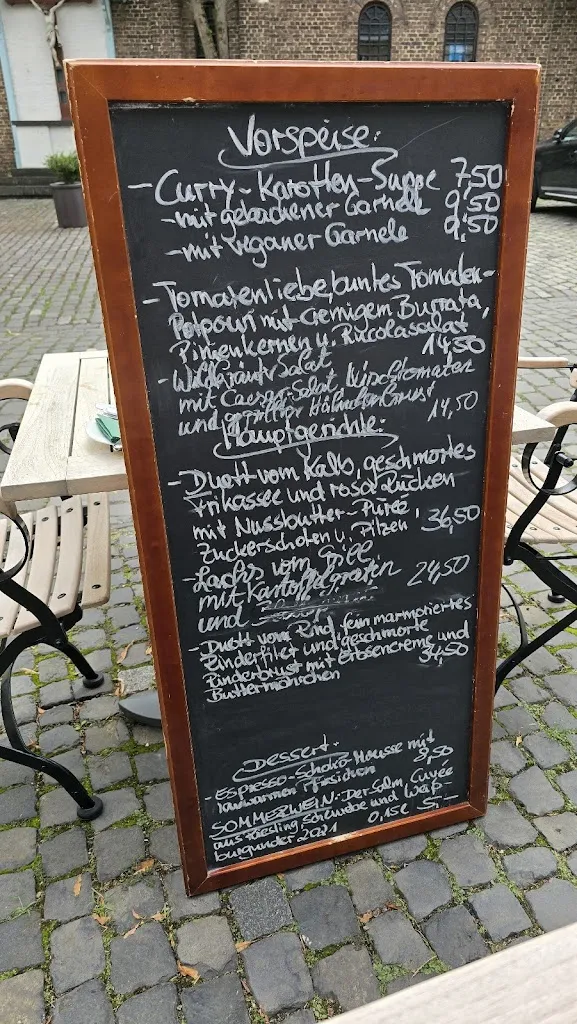 Vorspeise:
- Curry-Karotten-Suppe 7,50
- mit gebackener Garnele 9,50
- mit veganer Garnele 9,50
- Tomatenliebe, buntes Tomaten-
Potpouri mit cremigem Burrata,
Pinienkernen u. Rucolasalat
14,50
- Wildkräuter Salat
mit Caesar-Salat, Kirschtomaten
und gegrillter Hähnchenbrust 14,50
Hauptgerichte:
- Duett vom Kalb, geschmortes
Frikassee und rosa Rücken
mit Nussbutter-Püree,
Zuckerschoten u. Pilzen 36,50
- Lachs vom Grill
mit Kartoffelgratin 24,50
und
- Duett vom Rind, fein marmoriertes
Rinderfilet und geschmorte
Rinderbrust mit Erbsencreme und
Buttermöhrchen 34,50
Dessert:
- Espresso-Schoko-Mousse mit
lauwarmen Pfirsichen 9,50
SOMMERWEIN: Der Salm, Cuvée
aus Riesling, Scheurebe und Weiß-
burgunder 2021 0,15l 5,-